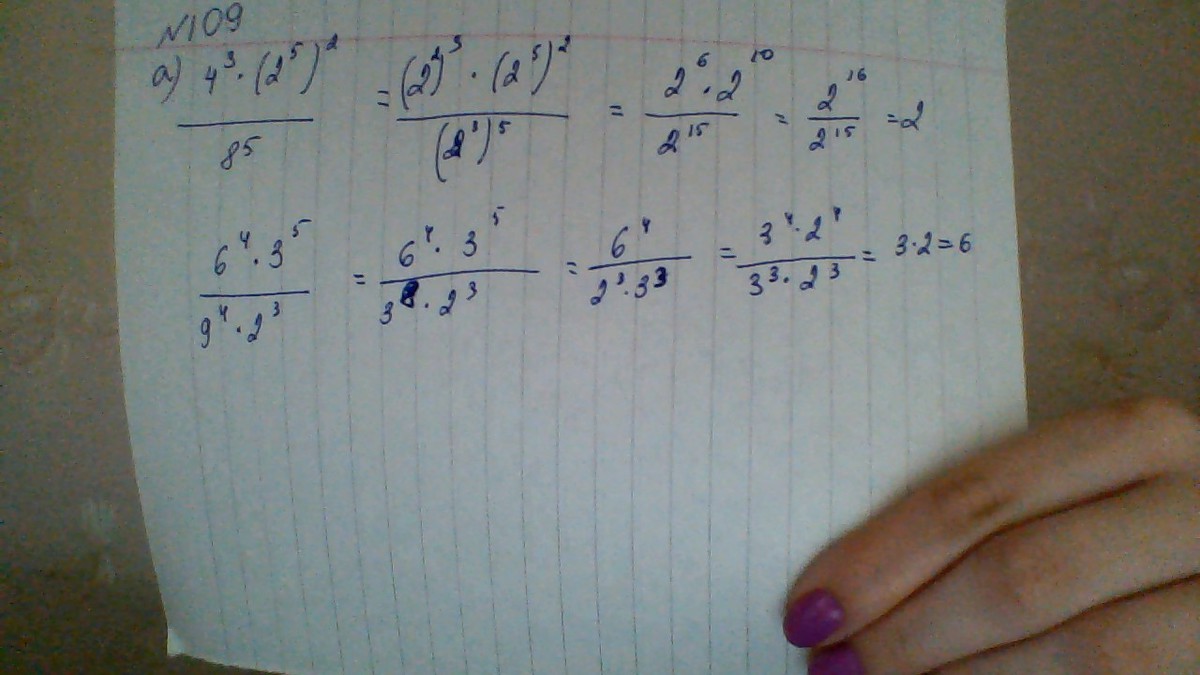 №109
а) 4³·(2⁵)² / 8⁵ = (2²)³·(2⁵)² / (2³)⁵ = 2⁶·2¹⁰ / 2¹⁵ = 2¹⁶ / 2¹⁵ = 2
6⁴·3⁵ / 9⁴·2³ = 6⁴·3⁵ / 3⁸·2³ = 6⁴ / 2³·3³ = 3⁴·2⁴ / 3³·2³ = 3·2=6